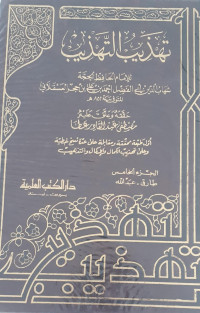 تهذيب التهذيب
للإمام الحافظ الحجة
شهاب الدين أبي الفضل أحمد بن علي بن حجر العسقلاني
المتوفى سنة ٨٥٢ هـ
حققه وعلق عليه
مصطفى عبد القادر عطا
الجزء الخامس
طارق - عبد الله
دار الكتب العلمية
تهذيب
التهذيب